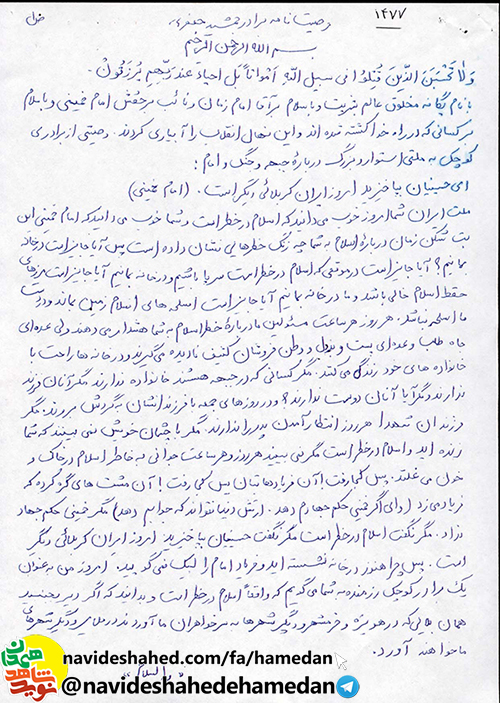 ۱۴۷۷
وصیتنامه برادر جمشید جعفری
بسم الله الرحمن الرحیم
وَلا تَحْسَبَنَ الَّذینَ قُتِلُوا فی سبیل اللّه اَمْواتاً بَل احیاءٌ عندَ رَبِّهِم یُرزَقُونْ.
بانام یگانه مخلوق عالم بشریت و باسلام بر آقا امام زمان و نائب برحقش امام خمینی و باسلام
بر کسانی که در راه خدا کشته شده اند و این نهال انقلاب را آبیاری کردند. وصیتی از برادری
کوچک به ملتی استوار و بزرگ درباره جبهه و جنگ و امام:
ای حسینیان بپا خیزید امروز ایران کربلائی دیگر است. (امام خمینی)
ملت ایران شما امروز خوب می دانید که اسلام در خطر است و شما خوب می دانید که امام خمینی این
بت شکن زمان درباره اسلام به شما چه زنگ خطرهایی نشان داده است پس آیا جایز است در خانه
بمانیم؟ آیا جایز است در موقعی که اسلام در خطر است سرپا باشیم و در خانه بمانیم آیا جایز است مرزهای
حفظ اسلام خالی باشد و ما در خانه بمانیم آیا جایز است اسلحه های اسلام زمین بماند و در دست
ما اسلحه نباشد. هر روز هر ساعت مسئولین ما درباره خطر اسلام به شما هشدار می دهند ولی عده ای
جاه طلب و عده ای پست و پول و وطن فروشان کثیف نادیده می گیرند و در خانه ها راحت با
خانواده های خود زندگی می کنند. مگر کسانی که در جبهه هستند خانواده ندارند مگر آنان فرزند
ندارند و مگر آیا آنان دوست ندارند؟ و در روزهای جمعه با فرزندانشان به گردش بروند. مگر
فرزندان شهدا هر روز انتظار آمدن پدر را ندارند. مگر با چشمان خودش نمی بینند که شما
زنده اید و اسلام در خطر است مگر نمی بینید هر روز و هر ساعت جوانی به خاطر اسلام در خاک و
خون می غلتد. پس کجا رفت آن فریادهایتان پس کجا رفت آن مشت های گره کرده که
فریاد می زد (وای اگر خمینی حکم جهادم دهد. ارتش دنیا نتواند که جوابم دهد) مگر خمینی حکم جهاد
نداد. مگر نگفت اسلام در خطر است مگر نگفت حسینیان بپا خیزید امروز ایران کربلائی دیگر
است. پس چرا هنوز در خانه نشسته اید و فریاد امام را لبیک نمی گویید. امروز من به عنوان
یک برادر کوچک رزمنده به شما می گویم که واقعاً اسلام در خطر است و بدانید که اگر دیر بجنبید
همان بلایی که در هویزه و خرمشهر و دیگر شهرها به سر خواهران ما آوردند در ملایر و دیگر شهرهای
ما خواهند آورد.
والسلام
نوید شاهد همدان
navideshahed.com/fa/hamedan
@navideshahedehamedan